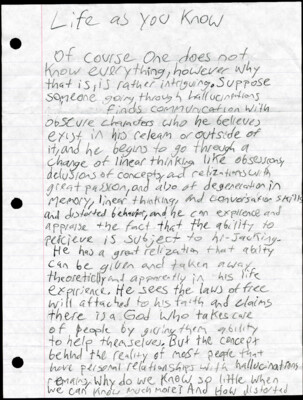 Life as you Know
Of course One does not
Know everything, however why
that is, is rather intriguing. Suppose
someone going through hallucinations
finds communication with
obscure characters who he believes
exist in his releam or outside of
it, and he begins to go through a
change of linear thinking like obsessions,
delusions of concepts, and relizations with
great passion, and also of degeneration in
memory, linear thinking, and conversation skills
and distorted behavior, and he can experience and
appraise the fact that the ability to
percieve is subject to hi-Jacking.
He has a great relization that ability
can be given and taken away
theoretically and apparently in his life
experience. He sees the laws of free
will attached to his faith and claims
there is a God who takes care
of people by giving them ability
to help themselves. But the concept
behind the reality of most people that
have personal relationships with hallucinations
remains. Why do we know so little when
we can know much more? And How distorted